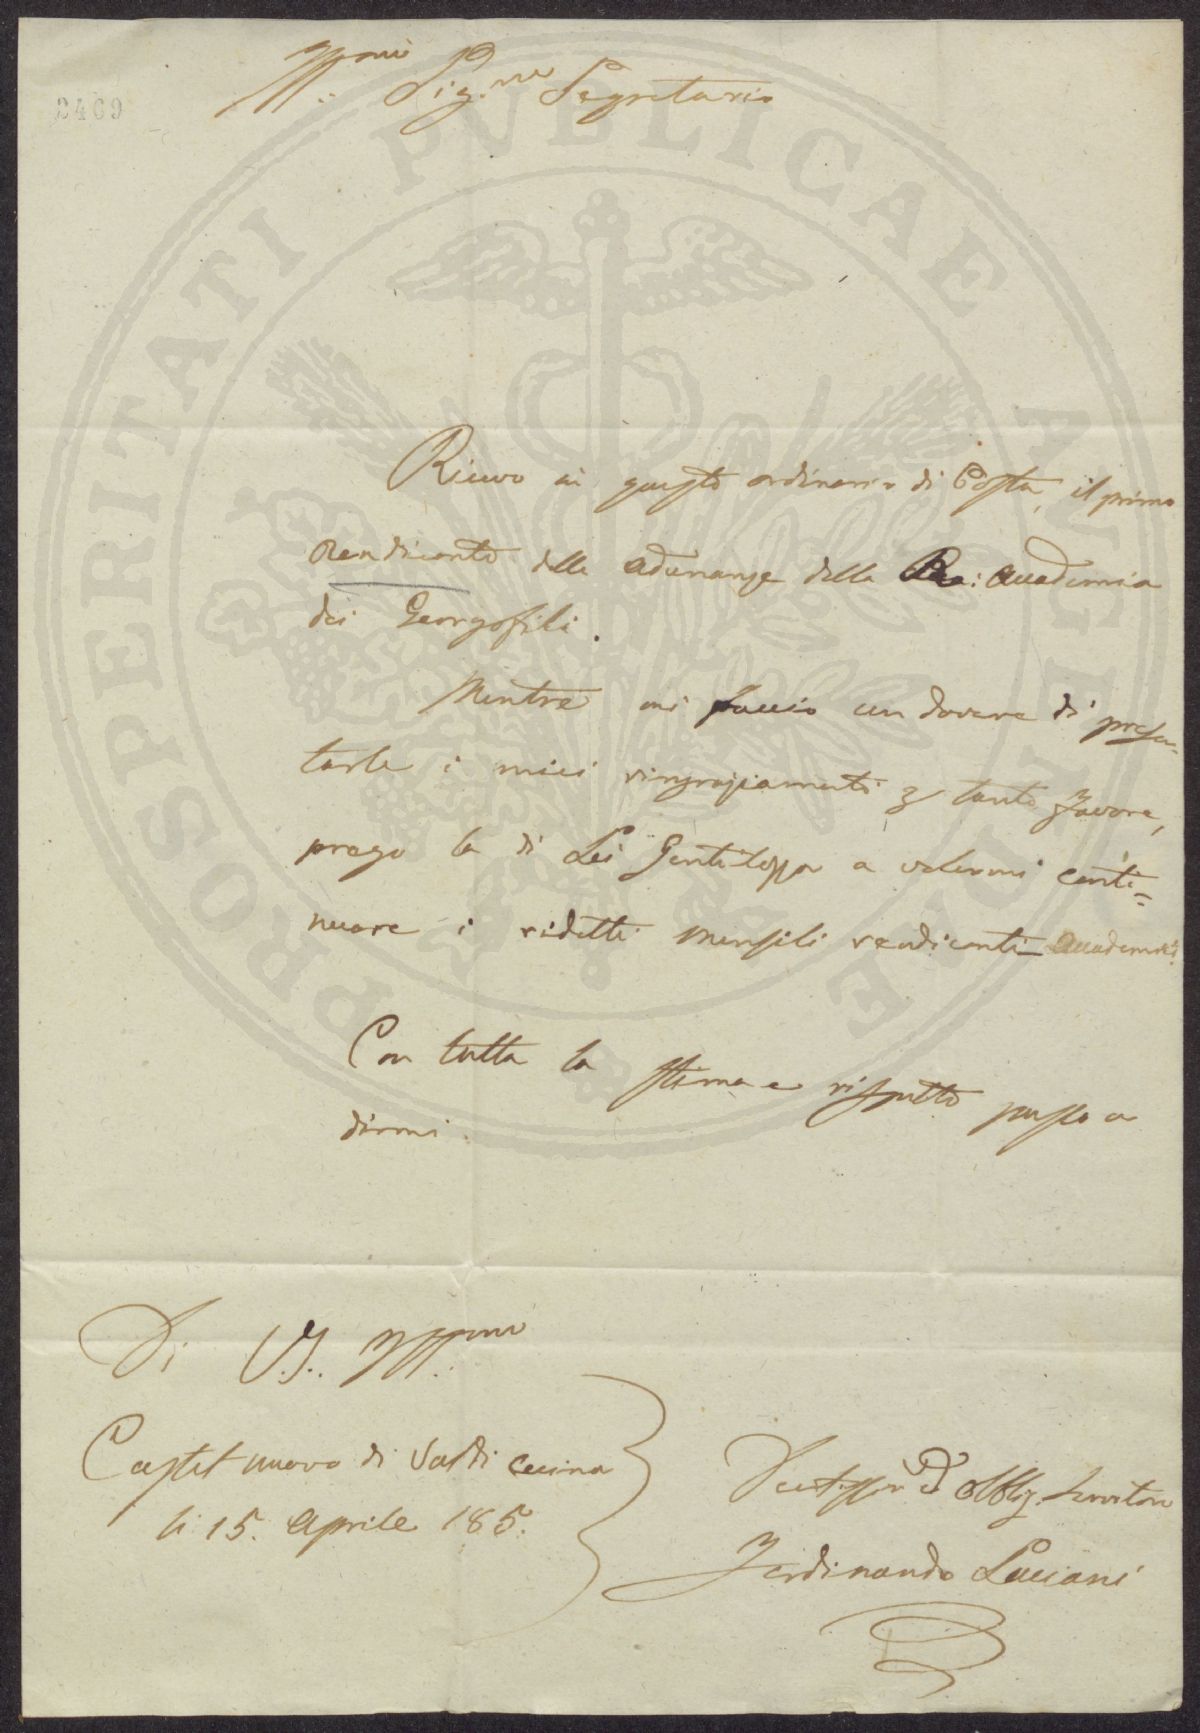 Ill.mo Sig.re Segretario
2409
PROSPERITATI PVBLICAE AVGENDAE
Ricevo in questo ordinario di Posta, il primo
Rendiconto delle adunanze della Rea: Accademia
dei Georgofili.
Mentre mi faccio un dovere di presen-
tarle i miei ringraziamenti tanto favore,
prego la di Lei Gentilezza a volermi conti=
nuare i ridetti mensili rendiconti Accademici.
Con tutta la stima e rispetto passo a
dirmi.
Di V.S. Ill.ma
Castel nuovo di Val di Cecina
li 15. Aprile 185.
Devotissimo ed Obblig. Servitore
Ferdinando Luciani